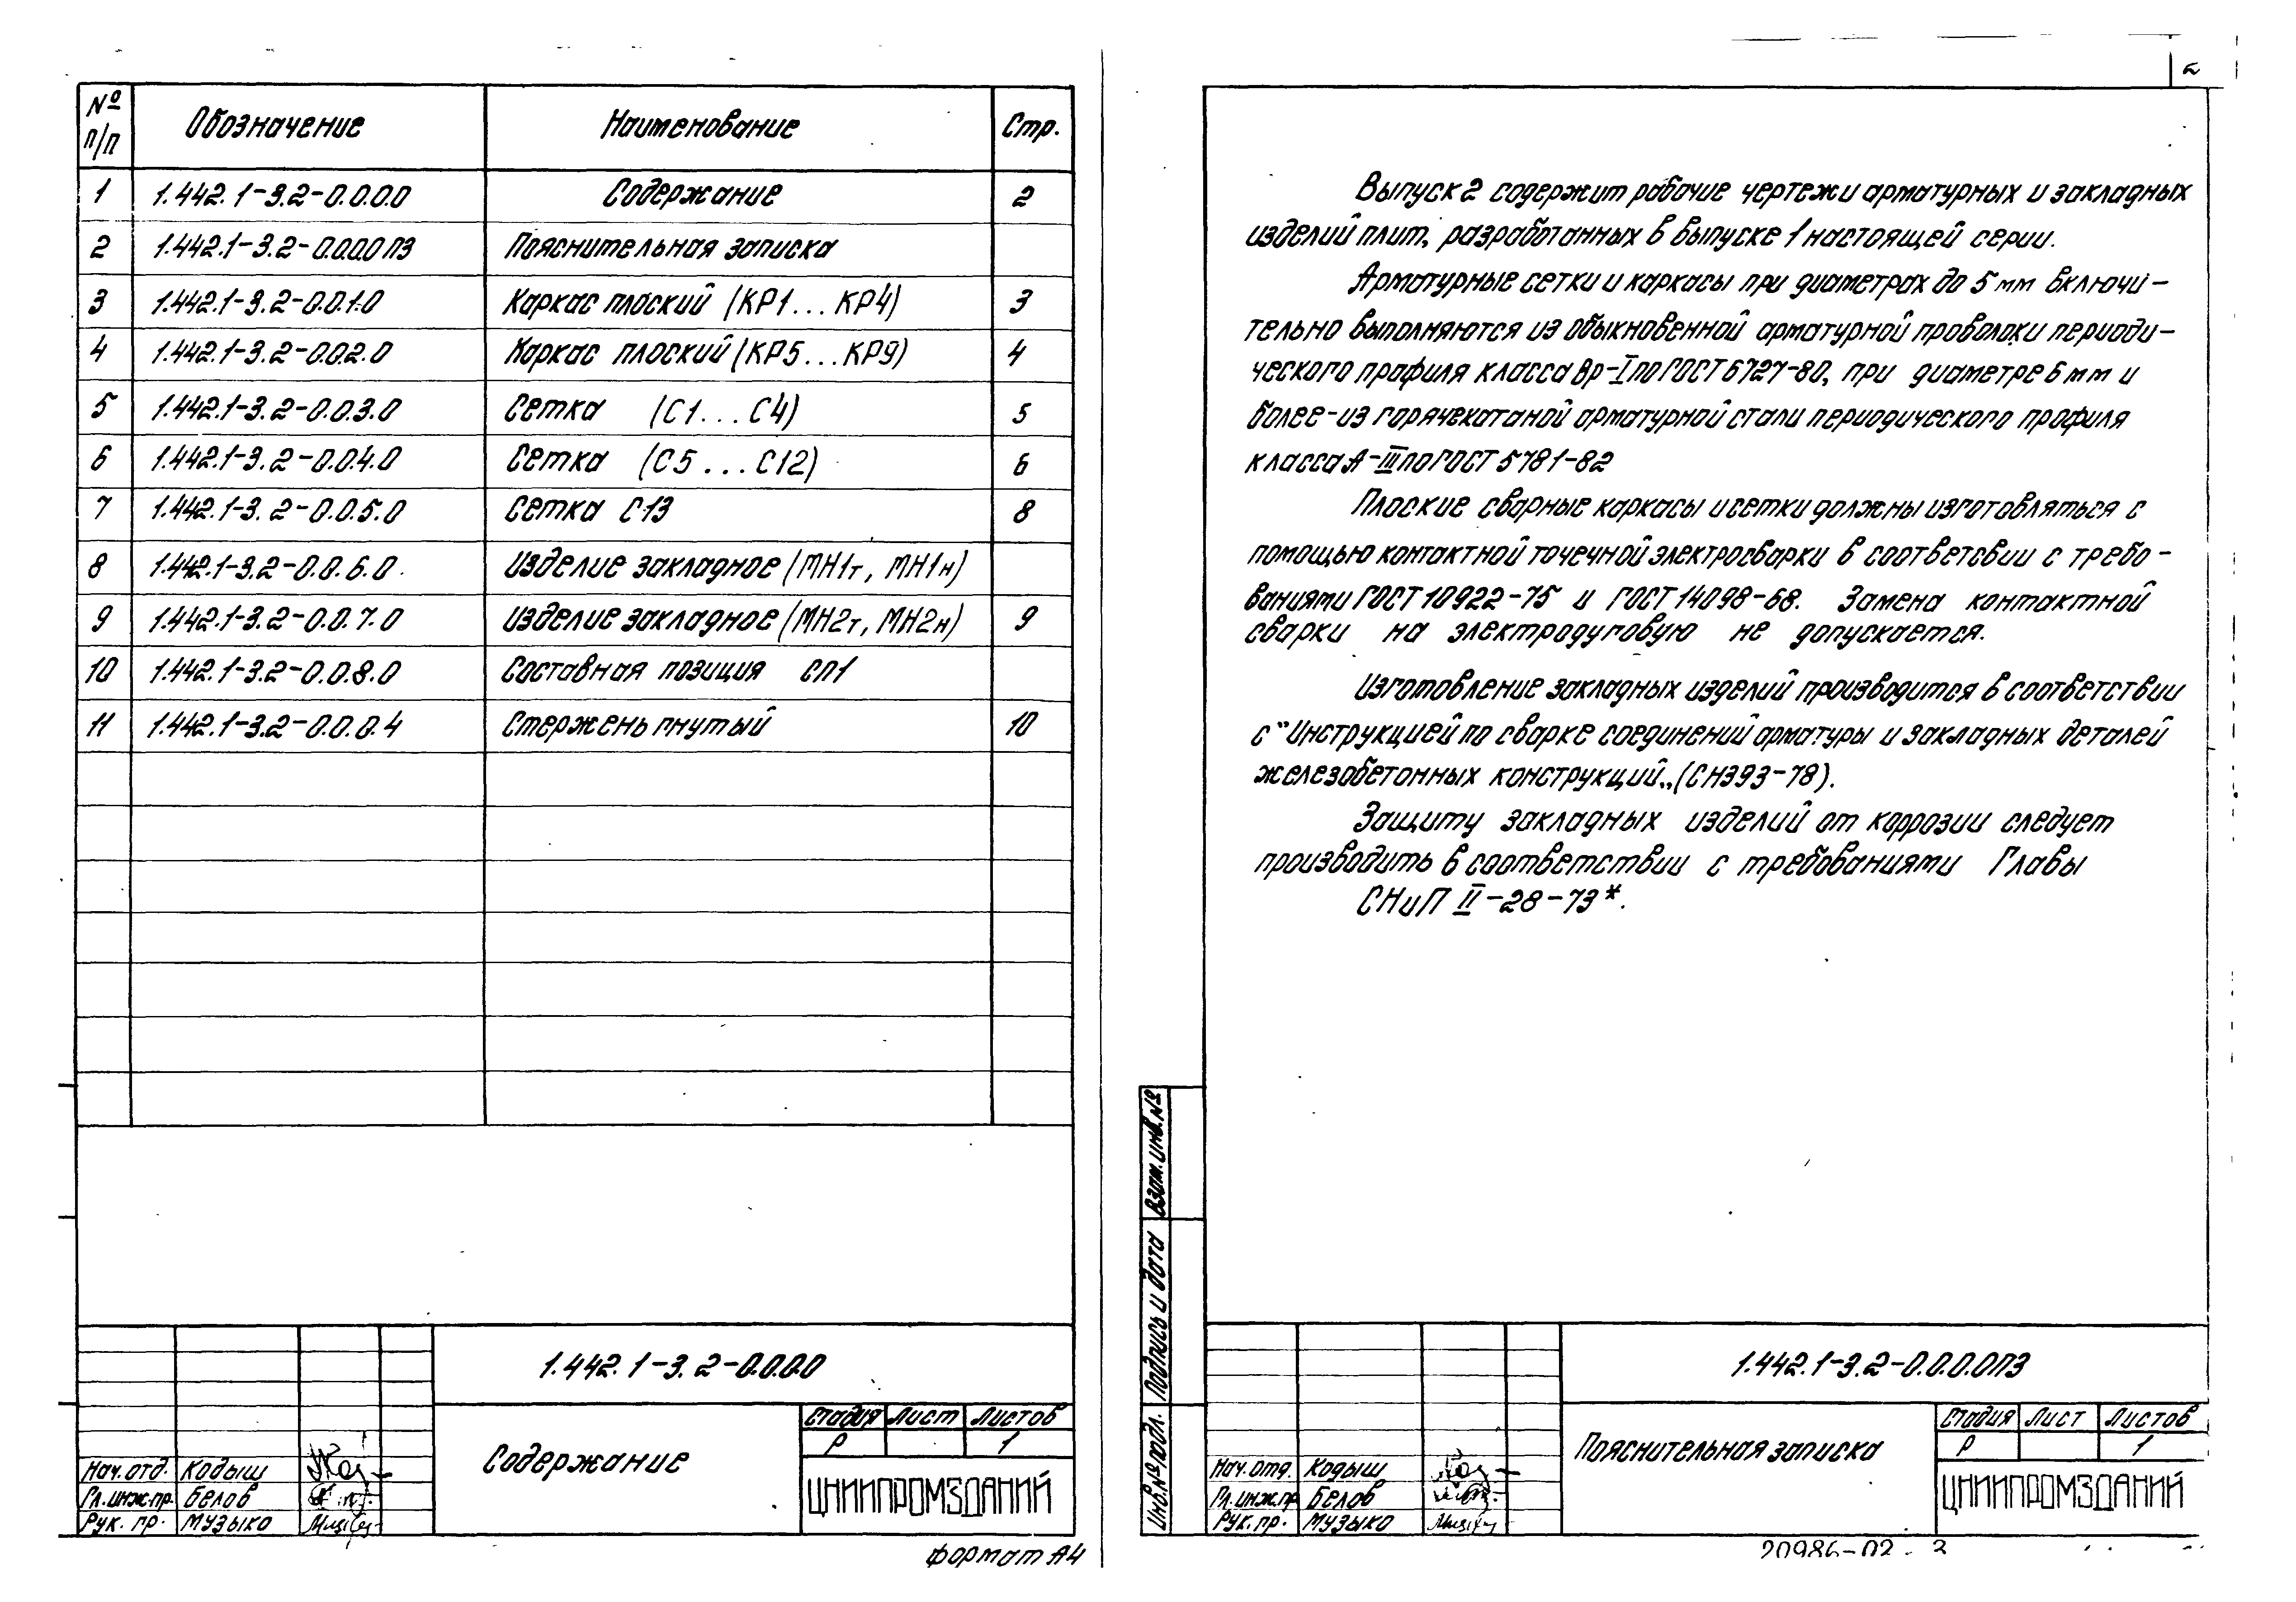 № п/п Обозначение Наименование Стр.
1 1.442.1-3.2-0.0.0.0 Содержание 2
2 1.442.1-3.2-0.0.0.0ПЗ Пояснительная записка
3 1.442.1-3.2-0.0.1.0 Каркас плоский (КР1...КР4) 3
4 1.442.1-3.2-0.0.2.0 Каркас плоский (КР5...КР9) 4
5 1.442.1-3.2-0.0.3.0 Сетка (С1...С4) 5
6 1.442.1-3.2-0.0.4.0 Сетка (С5...С12) 6
7 1.442.1-3.2-0.0.5.0 Сетка С13 8
8 1.442.1-3.2-0.0.6.0 Изделие закладное (МН1т, МН1н)
9 1.442.1-3.2-0.0.7.0 Изделие закладное (МН2т, МН2н) 9
10 1.442.1-3.2-0.0.8.0 Составная позиция СП1
11 1.442.1-3.2-0.0.0.4 Стержень гнутый 10
1.442.1-3.2-0.0.0.0
Содержание
Стадия Лист Листов
Р 1
Нач.отд. Кодыш
Гл.инж.пр. Белов
Рук. гр. Музыко
ЦНИИПРОМЗДАНИЙ
Формат А4
2
Выпуск 2 содержит рабочие чертежи арматурных и закладных
изделий плит, разработанных в выпуске 1 настоящей серии.
Арматурные сетки и каркасы при диаметрах до 5 мм включи-
тельно выполняются из обыкновенной арматурной проволоки периоди-
ческого профиля класса Вр-I по ГОСТ 6727-80, при диаметре 6 мм и
более-из горячекатаной арматурной стали периодического профиля
класса А-III по ГОСТ 5781-82
Плоские сварные каркасы и сетки должны изготовляться с
помощью контактной точечной электросварки в соответсвии с требо-
ваниями ГОСТ 10922-75 и ГОСТ 14098-68. Замена контактной
сварки на электродуговую не допускается.
Изготовление закладных изделий производится в соответствии
с "Инструкцией по сварке соединений арматуры и закладных деталей
железобетонных конструкций„ (СН393-78).
Защиту закладных изделий от коррозии следует
производить в соответствии с требованиями Главы
СНиП II-28-73*.
Взам.инв.№
Подпись и дата
Инв.№ подл.
1.442.1-3.2-0.0.0.0ПЗ
Пояснительная записка
Стадия Лист Листов
Р 1
Нач.отд. Кодыш
Гл.инж.пр Белов
Рук.гр. Музыко
ЦНИИПРОМЗДАНИЙ
20986-02 3